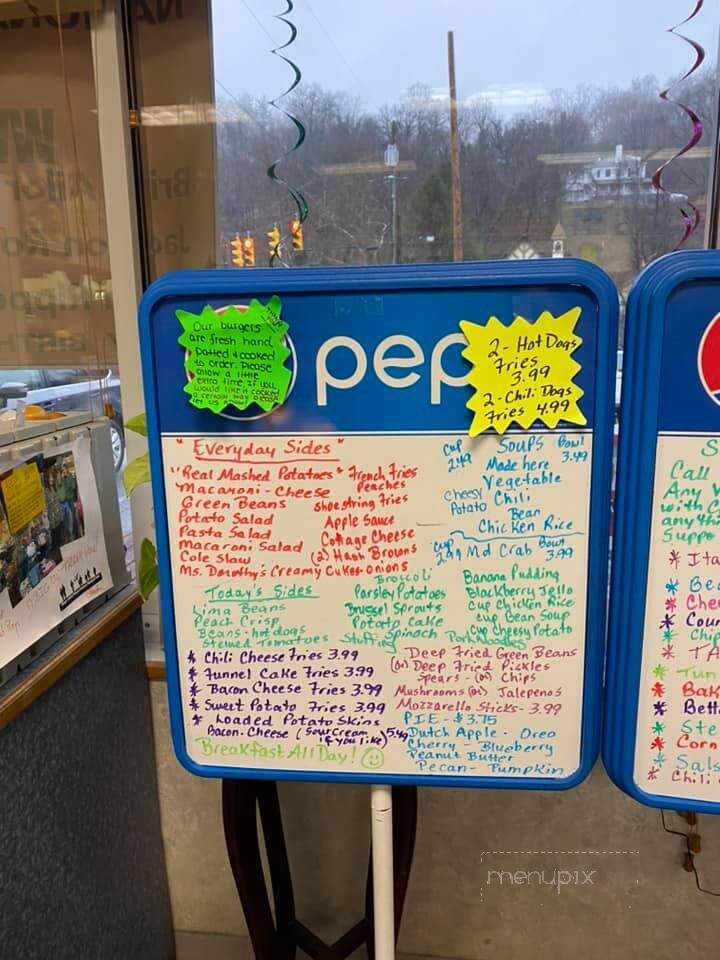 Our burgers
are fresh hand
patted & cooked
to order. Please
allow a little
extra time. If you
would like it cooked
a certain way please
let us know!
pep
2 - Hot Dogs
Fries
3.99
2 - Chili Dogs
Fries 4.99
"Everyday Sides"
"Real Mashed Potatoes"
Macaroni - Cheese
Green Beans
Potato Salad
Pasta Salad
Macaroni Salad
Cole Slaw
Ms. Dorothy's Creamy Cukes-onions
French Fries
Peaches
Shoestring Fries
Apple Sauce
Cottage Cheese
(2) Hash Browns
Cup Soups Bowl
2.49 Made here 3.49
Vegetable
Cheesy Chili
Potato Bean
Chicken Rice
Cup Bowl
2.99 Md Crab 3.99
Today's Sides
Lima Beans
Peach Crisp
Beans - hot dogs
Stewed Tomatoes
Broccoli
Parsley Potatoes
Brussel Sprouts
Potato cake
Spinach
Stuffing
Banana Pudding
Blackberry Jello
cup Chicken Rice
cup Bean Soup
cup Cheesy Potato
Pork Noodles
* Chili Cheese Fries 3.99
* Funnel Cake Fries 3.99
* Bacon Cheese Fries 3.99
* Sweet Potato Fries 3.99
* Loaded Potato Skins
Bacon - Cheese (Sour Cream if you like) 5.49
Breakfast All Day!
Deep Fried Green Beans
(or) Deep Fried Pickles
Spears - (or) Chips
Mushrooms (or) Jalepenos
Mozzarello Sticks - 3.99
PIE - $3.75
Dutch Apple - Oreo
Cherry - Blueberry
Peanut Butter
Pecan - Pumpkin
Call
Any
with C
anyth
Suppe
* Ita
* Be
* Che
* Cou
* Chi
* TA
* Tun
* Bak
* Bett
* Ste
* Corn
* Sals
* Chili
menupix